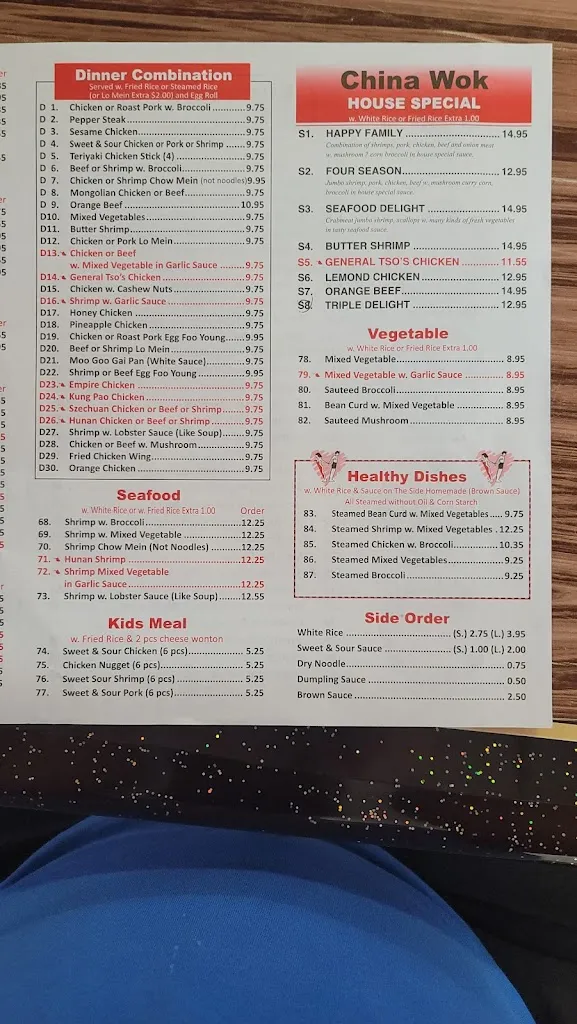 Dinner Combination
Served w. Fried Rice or Steamed Rice
(or Lo Mein Extra $2.00) and Egg Roll
D 1. Chicken or Roast Pork w. Broccoli ............9.75
D 2. Pepper Steak ............9.75
D 3. Sesame Chicken............9.75
D 4. Sweet & Sour Chicken or Pork or Shrimp .......9.75
D 5. Teriyaki Chicken Stick (4) ............9.75
D 6. Beef or Shrimp w. Broccoli............9.75
D 7. Chicken or Shrimp Chow Mein (not noodles)9.95
D 8. Mongolian Chicken or Beef............9.75
D 9. Orange Beef ............10.95
D10. Mixed Vegetables............9.75
D11. Butter Shrimp............9.75
D12. Chicken or Pork Lo Mein............9.75
D13. Chicken or Beef
w. Mixed Vegetable in Garlic Sauce ........9.75
D14. General Tso's Chicken ............9.75
D15. Chicken w. Cashew Nuts............9.75
D16. Shrimp w. Garlic Sauce ............9.75
D17. Honey Chicken ............9.75
D18. Pineapple Chicken ............9.75
D19. Chicken or Roast Pork Egg Foo Young......9.95
D20. Beef or Shrimp Lo Mein............9.75
D21. Moo Goo Gai Pan (White Sauce)............9.75
D22. Shrimp or Beef Egg Foo Young ............9.95
D23. Empire Chicken ............9.75
D24. Kung Pao Chicken ............9.75
D25. Szechuan Chicken or Beef or Shrimp.......9.75
D26. Hunan Chicken or Beef or Shrimp............9.75
D27. Shrimp w. Lobster Sauce (Like Soup).......9.75
D28. Chicken or Beef w. Mushroom............9.75
D29. Fried Chicken Wing............9.75
D30. Orange Chicken ............9.75
Seafood
w. White Rice or w. Fried Rice Extra 1.00 Order
68. Shrimp w. Broccoli............12.25
69. Shrimp w. Mixed Vegetable ............12.25
70. Shrimp Chow Mein (Not Noodles) ............12.25
71. Hunan Shrimp............12.25
72. Shrimp Mixed Vegetable
in Garlic Sauce............12.25
73. Shrimp w. Lobster Sauce (Like Soup).......12.55
Kids Meal
w. Fried Rice & 2 pcs cheese wonton
74. Sweet & Sour Chicken (6 pcs) ............5.25
75. Chicken Nugget (6 pcs)............5.25
76. Sweet Sour Shrimp (6 pcs) ............5.25
77. Sweet & Sour Pork (6 pcs)............5.25
China Wok
HOUSE SPECIAL
w. White Rice or Fried Rice Extra 1.00
S1. HAPPY FAMILY ............14.95
Combination of shrimps, pork, chicken, beef and onion meat
w. mushroom 2 corn broccoli in house special sauce.
S2. FOUR SEASON............12.95
Jumbo shrimp, pork, chicken, beef w. mushroom curry corn,
broccoli in house special sauce.
S3. SEAFOOD DELIGHT ............14.95
Crabmeat jumbo shrimp, scallops w. many kinds of fresh vegetables
in tasty seafood sauce.
S4. BUTTER SHRIMP ............14.95
S5. GENERAL TSO'S CHICKEN ............11.55
S6. LEMOND CHICKEN ............12.95
S7. ORANGE BEEF............14.95
S8. TRIPLE DELIGHT ............12.95
Vegetable
w. White Rice or Fried Rice Extra 1.00
78. Mixed Vegetable............8.95
79. Mixed Vegetable w. Garlic Sauce ............8.95
80. Sauteed Broccoli............8.95
81. Bean Curd w. Mixed Vegetable ............8.95
82. Sauteed Mushroom ............8.95
Healthy Dishes
w. White Rice & Sauce on The Side Homemade (Brown Sauce)
All Steamed without Oil & Corn Starch
83. Steamed Bean Curd w. Mixed Vegetables.... 9.75
84. Steamed Shrimp w. Mixed Vegetables .12.25
85. Steamed Chicken w. Broccoli............10.35
86. Steamed Mixed Vegetables............9.25
87. Steamed Broccoli............9.25
Side Order
White Rice ............(S.) 2.75 (L.) 3.95
Sweet & Sour Sauce ............(S.) 1.00 (L.) 2.00
Dry Noodle............0.75
Dumpling Sauce ............0.50
Brown Sauce............2.50